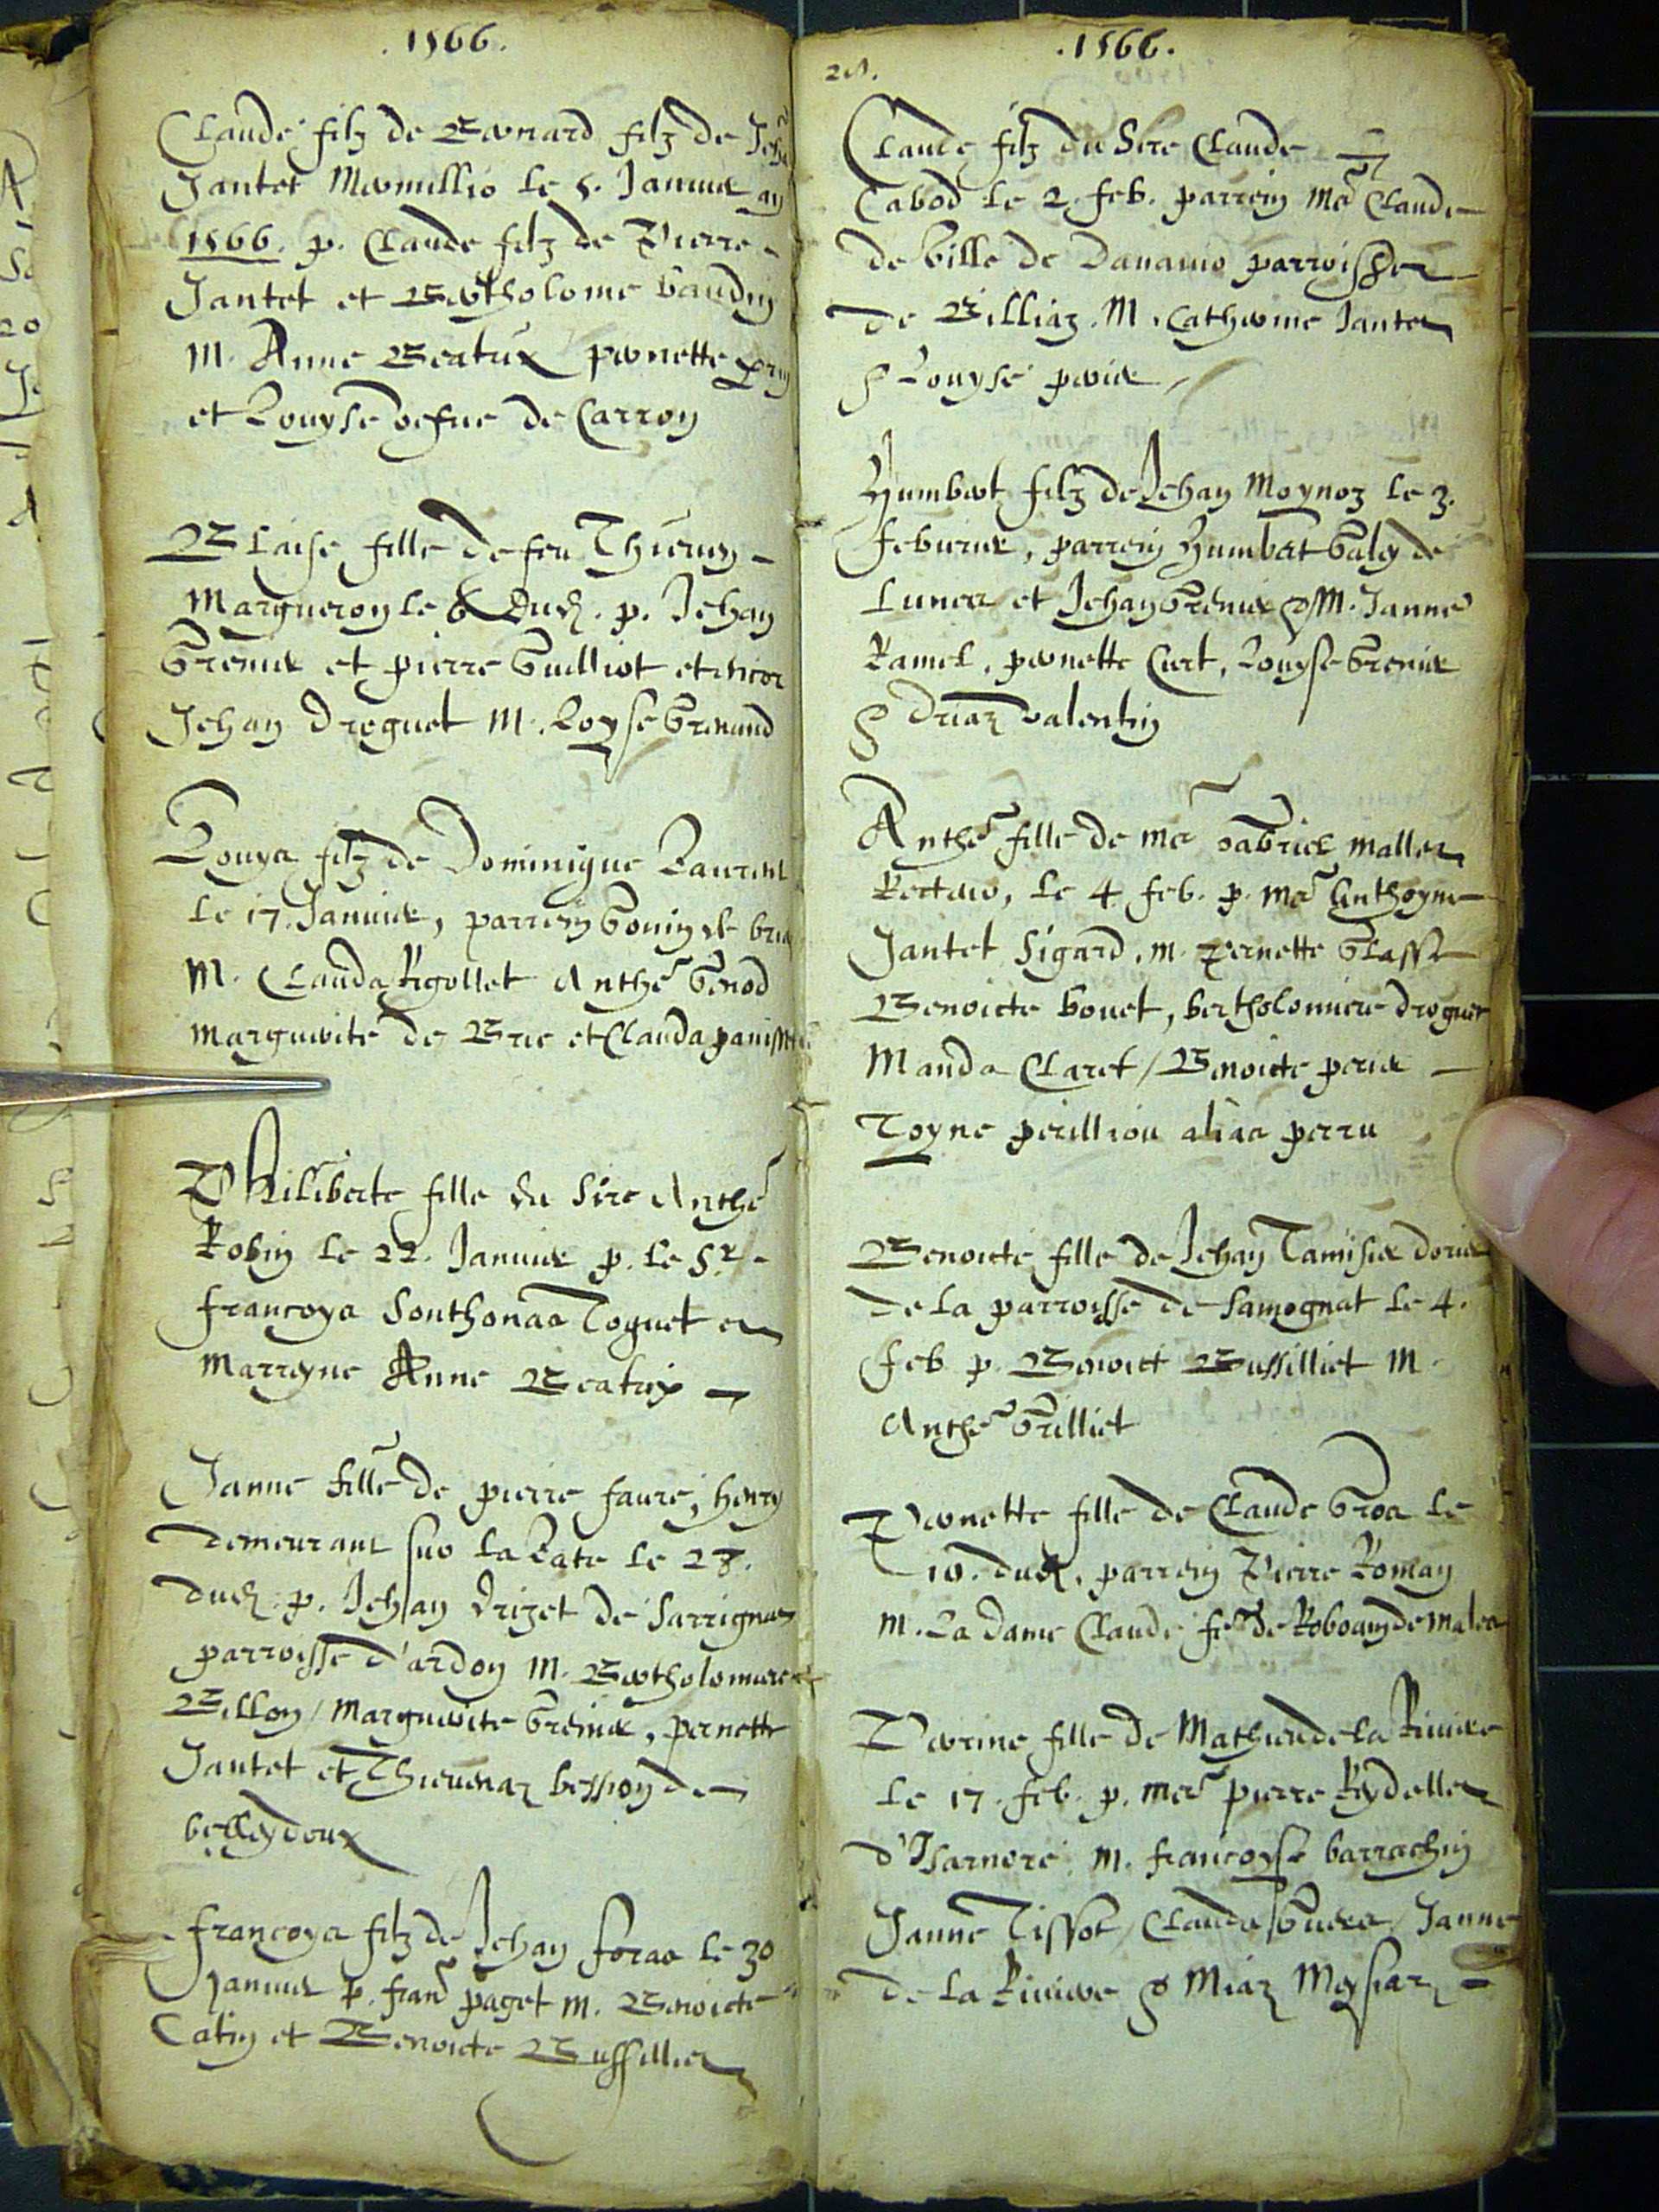 .1566.
Claude filz de Bernard filz de Jehã
Jantet Mermillio le 5. Januier an
1566. p. Claude filz de Pierre
Jantet et Bertholome baudin
M. Anne Beatrix pernette
et Louyse vefue de Carron
Blaise fille de feu Thieuen
Margueron le 6 Dud. p. Jehan
Grenier et pierre Guilliot et
Jehan Droguet M. Loyse Grenaud
Louys filz de Dominique Laurent
le 17. Januier, parrein Gonin de brie
M. Clauda Rigollet Anthe Genod
Marguerite de Brie et Clauda
Philiberte fille du Sire Anthe
Robin le 22. Januier p. le Sr.
francoys Sonthonas Toguet et
Marreyne Anne Beatrix
Janne fille de pierre faure, henry
Demeurant sus la Late le 28.
dud. p. Jehan Drizet de Sarrignas
parroisse d'ardon M. Bertholomiere
Billon / Marguerite Grenier, pernette
Jantet et Thieuenaz besson de
belleydoux
francoys filz de Jehan foras le 30
Januier p. fran paget M. Benoicte
Catin et Benoicte Bussilliet
.1566.
Claude filz du Sire Claude
Cabod le 2. feb. parrein Mre Claude
de Ville de
de Billiaz. M. Catherine Jantet
& Louyse perier
Humbert filz de Jehan Moynoz le 3.
feburier, parrein Humbert Galey de
Lunes et Jehan Grenier & M. Janne
Ramel, pernette Curt, Louyse Grenier
& Driaz Valentin
Anthe fille de mre Gabriel mallet
le 4 feb. p. Mre Anthoyne
Jantet Sigard. M. Pernette
Benoicte bouet, bertholomiere droguet
Manda Claret / Benoicte perier
Toyne perilliou alias perru
Benoicte fille de Jehan Tamisier
de la parroisse de Samognat le 4.
feb p. Benoict Bussilliet M.
Anthe Grilliet
Pernette fille de Claude Gros le
10. dud. parrein Pierre Roman
M. La dame Claude fe de Roboam de Males
Perrine fille de Mathieu de la Riuiere
le 17. feb. p. mre pierre Reydellet
d'Isarnore M. francoyse barrachin
Janne Tissot / Clauda / Janne
de la Riuiere & Miaz Meysiaz